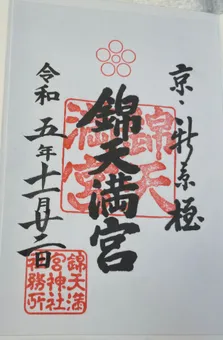 京、新京極
錦天満宮
令和五年十一月廿二日
錦天
満宮
錦天満
宮神社
社務所